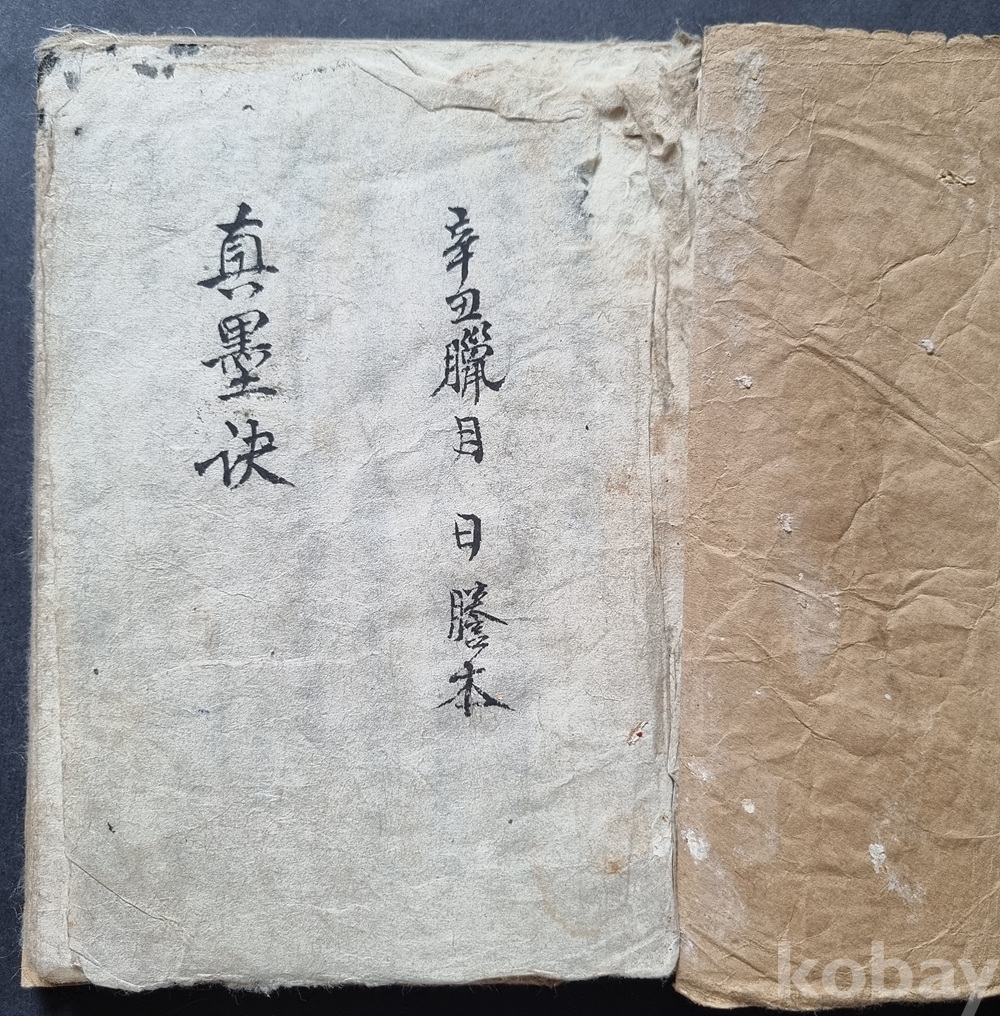 辛丑臘月 日謄本
真墨訣
kobay